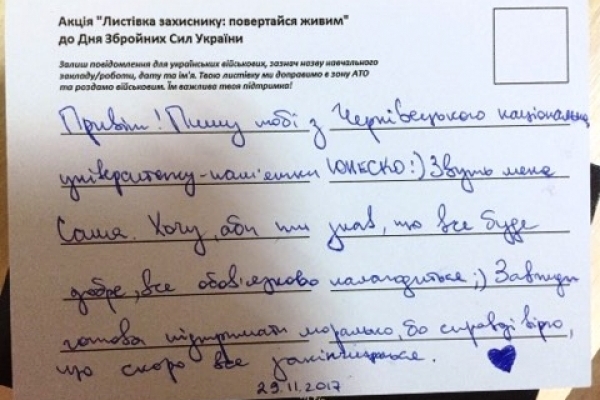 Акція "Листівка захиснику: повертайся живим"
до Дня Збройних Сил України
Залиш повідомлення для українських військових, зазнач назву навчального
закладу/роботи, дату та ім'я. Твою листівку ми доправимо в зону АТО
та роздамо військовим. Їм важлива твоя підтримка!
Привіт! Пишу тобі з Чернівецького національно
університету-пам'ятки ЮНЕСКО:) Звуть мене
Саша. Хочу, аби ти знав, що все буде
добре, все обов'язково налагодиться ;) Завжди
готова підтримати морально, бо справді вірю,
що скоро все закінчиться.
29.11.2017